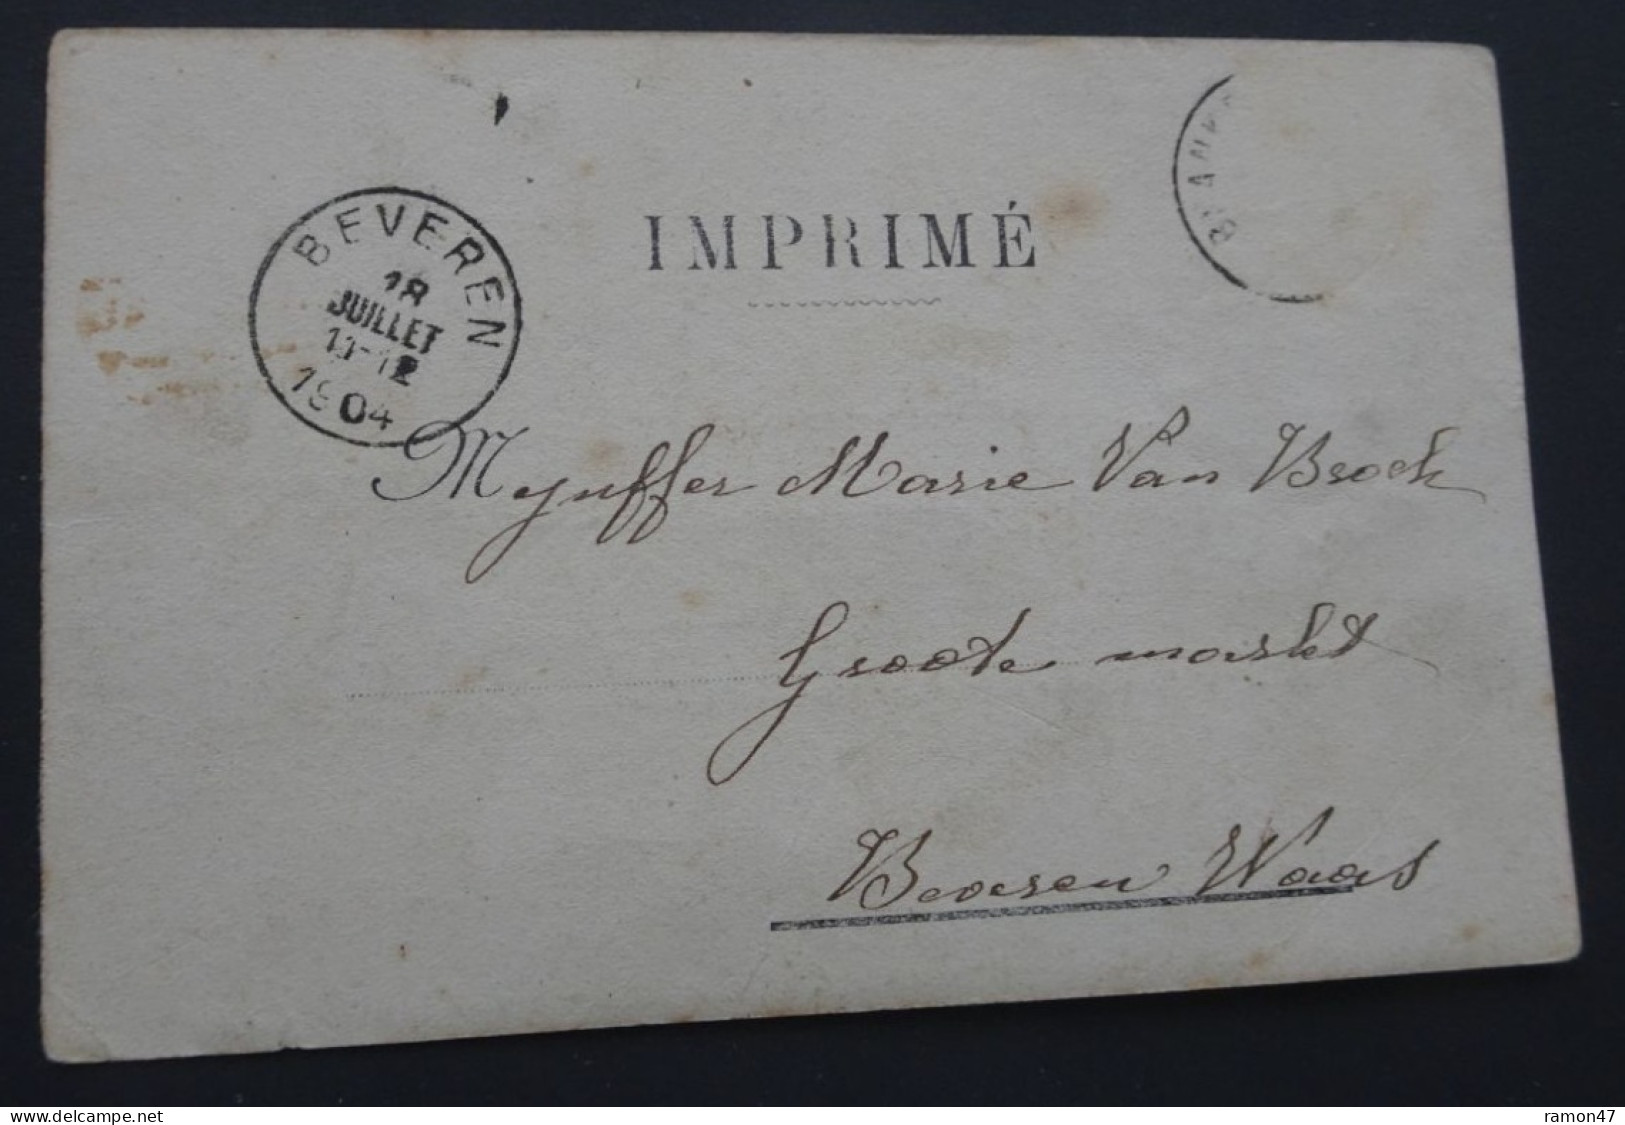 BEVEREN
18
JUILLET
11-12
1904
IMPRIMÉ
Mejuffer Marie Van Broeck
Groote markt
Beveren Waas
delcampe.net
ramon47